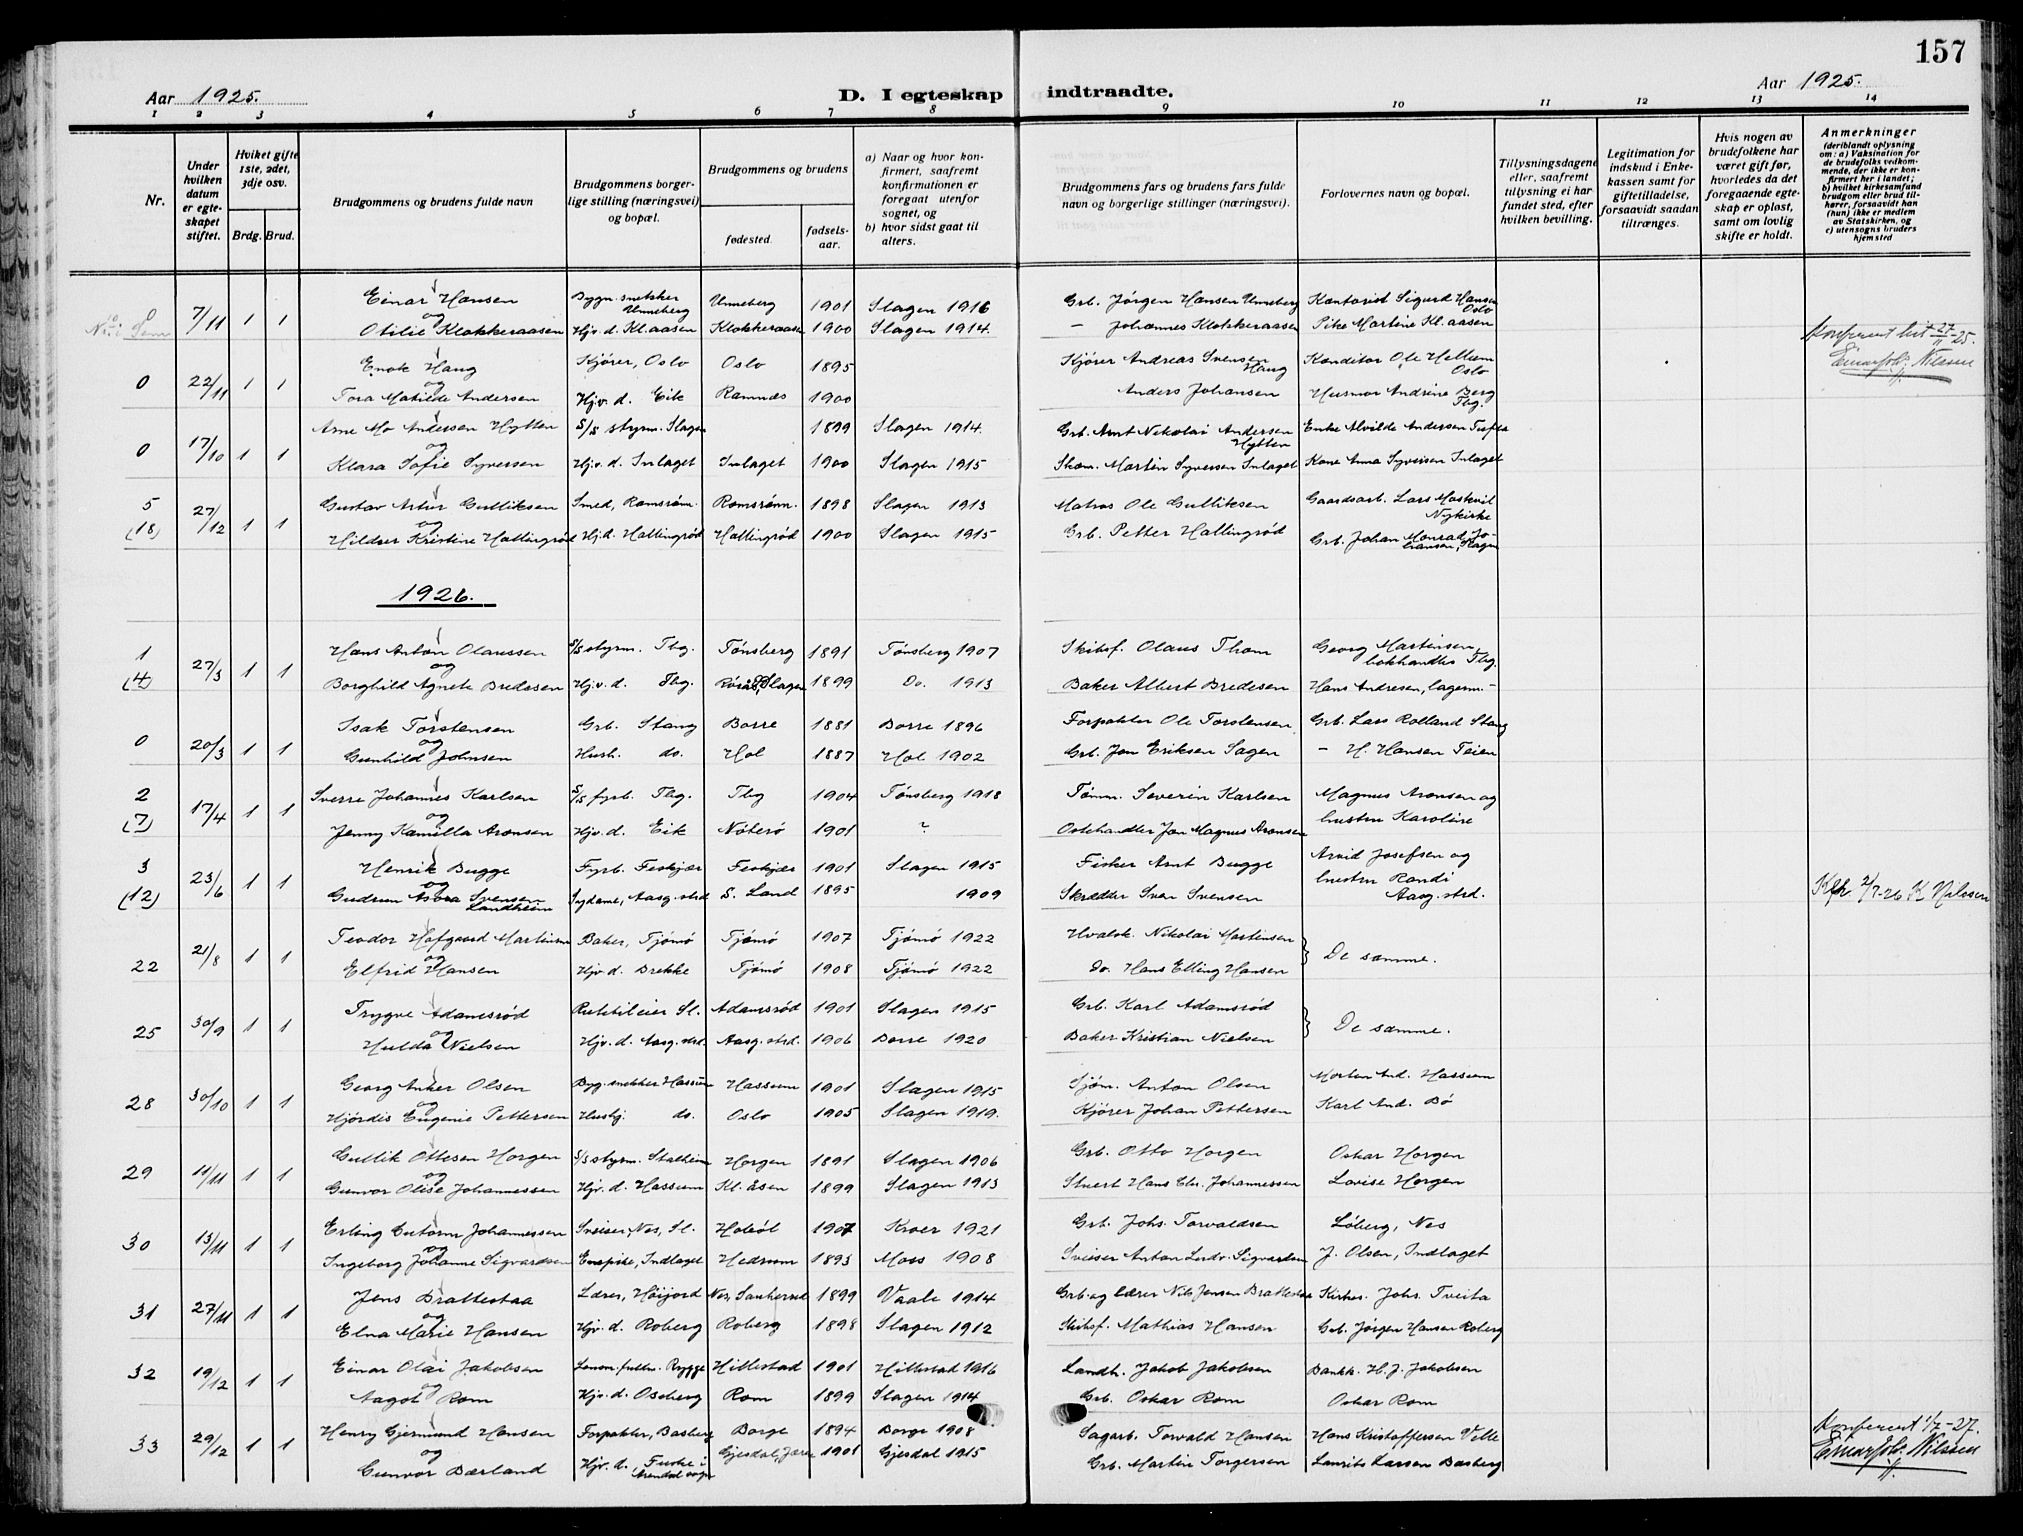 157
Aar 1925. D. I egteskap indtraadte. Aar 1925.
1 2 3 4 5 6 7 8 9 10 11 12 13 14
Nr.
Under hvilken datum er egteskapet stiftet.
Hviket gifte 1ste, 2det, 3dje osv.
Brdg. Brud.
Brudgommens og brudens fulde navn
Brudgommens borgerlige stilling (næringsvei) og bopæl.
Brudgommens og brudens
fødested. fødselsaar.
a) Naar og hvor konfirmert, saafremt konfirmationen er foregaat utenfor sognet, og
b) hvor sidst gaat til alters.
Brudgommens fars og brudens fars fulde navn og borgerlige stillinger (næringsvei).
Forlovernes navn og bopæl.
Tillysningsdagene eller, saafremt tillysning ei har fundet sted, efter hvilken bevilling.
Legitimation for indskud i Enkekassen samt for giftetilladelse, forsaavidt saadan tiltrænges.
Hvis nogen av brudefolkene har været gift før, hvorledes da det foregaaende egteskap er opløst, samt om lovlig skifte er holdt.
Anmerkninger (deriblandt oplysning om: a) Vaksination for de brudefolks vedkommende, der ikke er konfirmert her i landet; b) hvilket kirkesamfund brudgom eller brud tilhører, forsaavidt han (hun) ikke er medlem av Statskirken, og c) utensogns bruders hjemsted
0 7/11 1 1 Einar Hansen Bygn. snekker Unneberg Unneberg 1901 Slagen 1916 Grb. Jørgen Hansen Unneberg Kontorist Sigurd Hansen Oslo
og
Otilie Klokkeraasen Hjv. d. Kl. aasen Klokkeraasen 1900 Slagen 1914. — Johannes Klokkeraasen Pike Martine Kl. aasen
Konferert hit 27/11-25.
Einar Joh. Nilssen
0 22/11 1 1 Enok Haug Kjører, Oslo Oslo 1895 Kjører Andreas Svensen Haug Konditor Ole Hellum Oslo
og
Tora Matilde Andersen Hjv. d. Eik Ramnæs 1900 Anders Johansen Husmor Andrine Berg Tbg.
0 17/10 1 1 Arne Mo Andersen Hytten S/S styrm. Slagen 1899 Slagen 1914. Grb. Arnt Nikolai Andersen Hytten Enke Alvilde Andersen
og
Klara Sofie Syversen Hjv. d. Inlaget Inlaget 1900 Slagen 1915 Skom. Martin Syversen Inlaget Kone Anna Syversen Inlaget
5 (18) 27/12 1 1 Gustav Artur Gulliksen Smed, Ramsrøm. Ramsrøm. 1898 Slagen 1913 Matros Ole Gulliksen Gaardsarb. Lars Moskvil Nykirke
og
Hildur Kristine Hallingrød Hj.d. Hallingrød Hallingrød 1900 Slagen 1915 Grb. Petter Hallingrød Grb. Johan Monrad Johansen, Slagen
1926.
1 (4) 27/3 1 1 Hans Anton Olaussen S/S styrm. Tbg. Tønsberg 1891 Tønsberg 1907 Skibsf. Olaus Thom Georg Martinsen, bokhandler Tbg.
og
Borghild Agnete Bredesen Hjv. d. Tbg. Slagen 1899 Do. 1913 Baker Albert Bredesen Hans Andresen, lagerm. —
0 20/3 1 1 Isak Torstensen Grb. Stang Borre 1881 Borre 1896 Forpakter Ole Torstensen Grb. Lars Rolland Stang
og
Gunhild Johnsen Hush. do. Hol 1887 Hol 1902 Grb. Jon Eriksen Sagen — H. Hansen Teien
2 (7) 17/4 1 1 Sverre Johannes Karlsen S/S fyrb. Tbg. Tbg 1904 Tønsberg 1918 Tømm. Severin Karlsen Magnus Aronsen og
og
Jenny Kamilla Aronsen Hjv. d. Eik Nøterø 1901 ? Ostehandler Jon Magnus Aronsen hustru Karoline
3 (12) 23/6 1 1 Henrik Bugge Fyrb. Feskjær Feskjær 1901 Slagen 1915 Fisker Arnt Bugge Arvid Josefsen og
og
Gudrun Asora Svensen Landheim Sydame, Aasg. strd S. Land 1895 1909 Skrædder Sven Svensen hustru Randi Aasg. strd.
Kfr 2/7-26 K Nilssen
22 21/8 1 1 Teodor Hofgaard Martinsen Baker, Tjømø Tjømø 1907 Tjømø 1922 Hvalsk. Nikolai Martinsen De samme.
og
Elfrid Hansen Hjv. d. Brekke Tjømø 1908 Tjømø 1922 Do. Hans Elling Hansen
25 30/9 1 1 Trygve Adamsrød Rutebileier Sl. Adamsrød 1901 Slagen 1915 Grb. Karl Adamsrød De samme.
og
Hulda Nielsen Hjv. d. Aasg. strd. Aasg. strd. 1906 Borre 1920 Baker Kristian Nielsen
28 30/10 1 1 Georg Anker Olsen Byg. snekker Hassum Hassum 1901 Slagen 1915 Sjøm. Anton Olsen Morten And. Hassum
og
Hjørdis Eugenie Pettersen Husbj. do. Oslo 1905 Slagen 1919. Kjører Johan Pettersen Karl And. Bø
29 11/11 1 1 Gullik Ottesen Horgen S/S styrm. Stalheim Horgen 1891 Slagen 1906 Grb. Otto Horgen Oskar Horgen
og
Gunvor Olise Johannessen Hjv. d. Hassum Kl. Åsen 1899 Slagen 1913 Stuert Hans Chr. Johannessen Lovise Horgen
30 13/11 1 1 Erling Gutorm Johannessen Sveiser, Nes, Sl. Hobøl 1907 Kroer 1921 Grb. Johs. Torvaldsen Løberg, Nes
og
Ingeborg Johanne Sigvardsen Enspike, Indlaget Hedrum 1893 Moss 1908 Sveiser Anton Ludv. Sigvardsen J. Olsen, Indlaget
31 27/11 1 1 Jens Brattestaa Lærer, Høijord Nes, Sanherred 1899 Vaale 1914 Grb. og lærer Nils Jensen Brattestaa Kirkes. Johs. Tveita
og
Elna Marie Hansen Hjv. d. Roberg Roberg 1898 Slagen 1912 Skibsf. Mathias Hansen Grb. Jørgen Hansen Roberg
32 19/12 1 1 Einar Olai Jakobsen Lensm. fullm. Rygge Hillestad 1901 Hillestad 1916 Landh. Jakob Jakobsen Bankk. H. J. Jakobsen
og
Aagot Rom Hjv. d. Oseberg Rom 1899 Slagen 1914 Grb. Oskar Rom Oskar Rom
33 29/12 1 1 Henry Gjermund Hansen Forpakter, Basberg Borge 1894 Borge 1908 Sagarb. Torvald Hansen Hans Kristoffersen Velle
og
Gunvor Bærland Hjv. d, Fuske i Arendal sogn Gjesdal, Jæren 1901 Gjesdal 1915 Grb. Martin Torgersen Laurits Larsen Basberg
Konferert 1/2-27.
Einar Joh. Nilssen